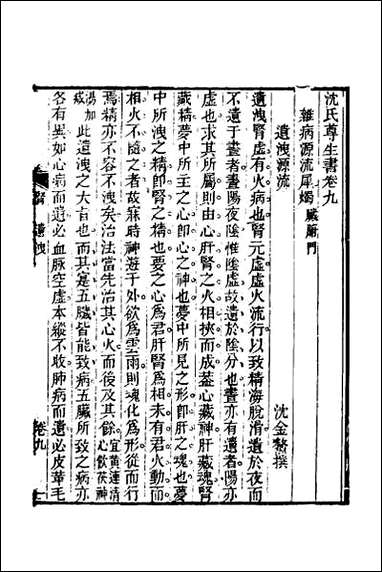 沈氏尊生書卷九
雜病源流犀燭 臟腑門
沈金鰲撰
遺洩源流
遺洩腎虛有火病也腎元虛虛火流行以致精海脫滑遺於夜而
不遺于晝者晝陽夜陰惟陰虛故遺於陰分也晝亦有遺者陽亦
虛也求其所屬則由心肝腎之火相挾而成蓋心藏神肝藏魂腎
藏精夢中所主之心即心之神也夢中所見之形即肝之魂也夢
中所洩之精即腎之精也要之心為君肝腎為相未有君火動而
相火不隨之者故寐時神遊于外欲為雲雨則魂化為形從而行
焉精亦不容不洩矣治法當先治其心火而後及其餘宜黃連清心飲茯神
湯加減此遺洩之大旨也而其是五臟皆能致病五臟所致之病亦
各有異如心病而遺必血脈空虛本縱不收肺病而遺必皮革毛
腎 遺洩
卷九